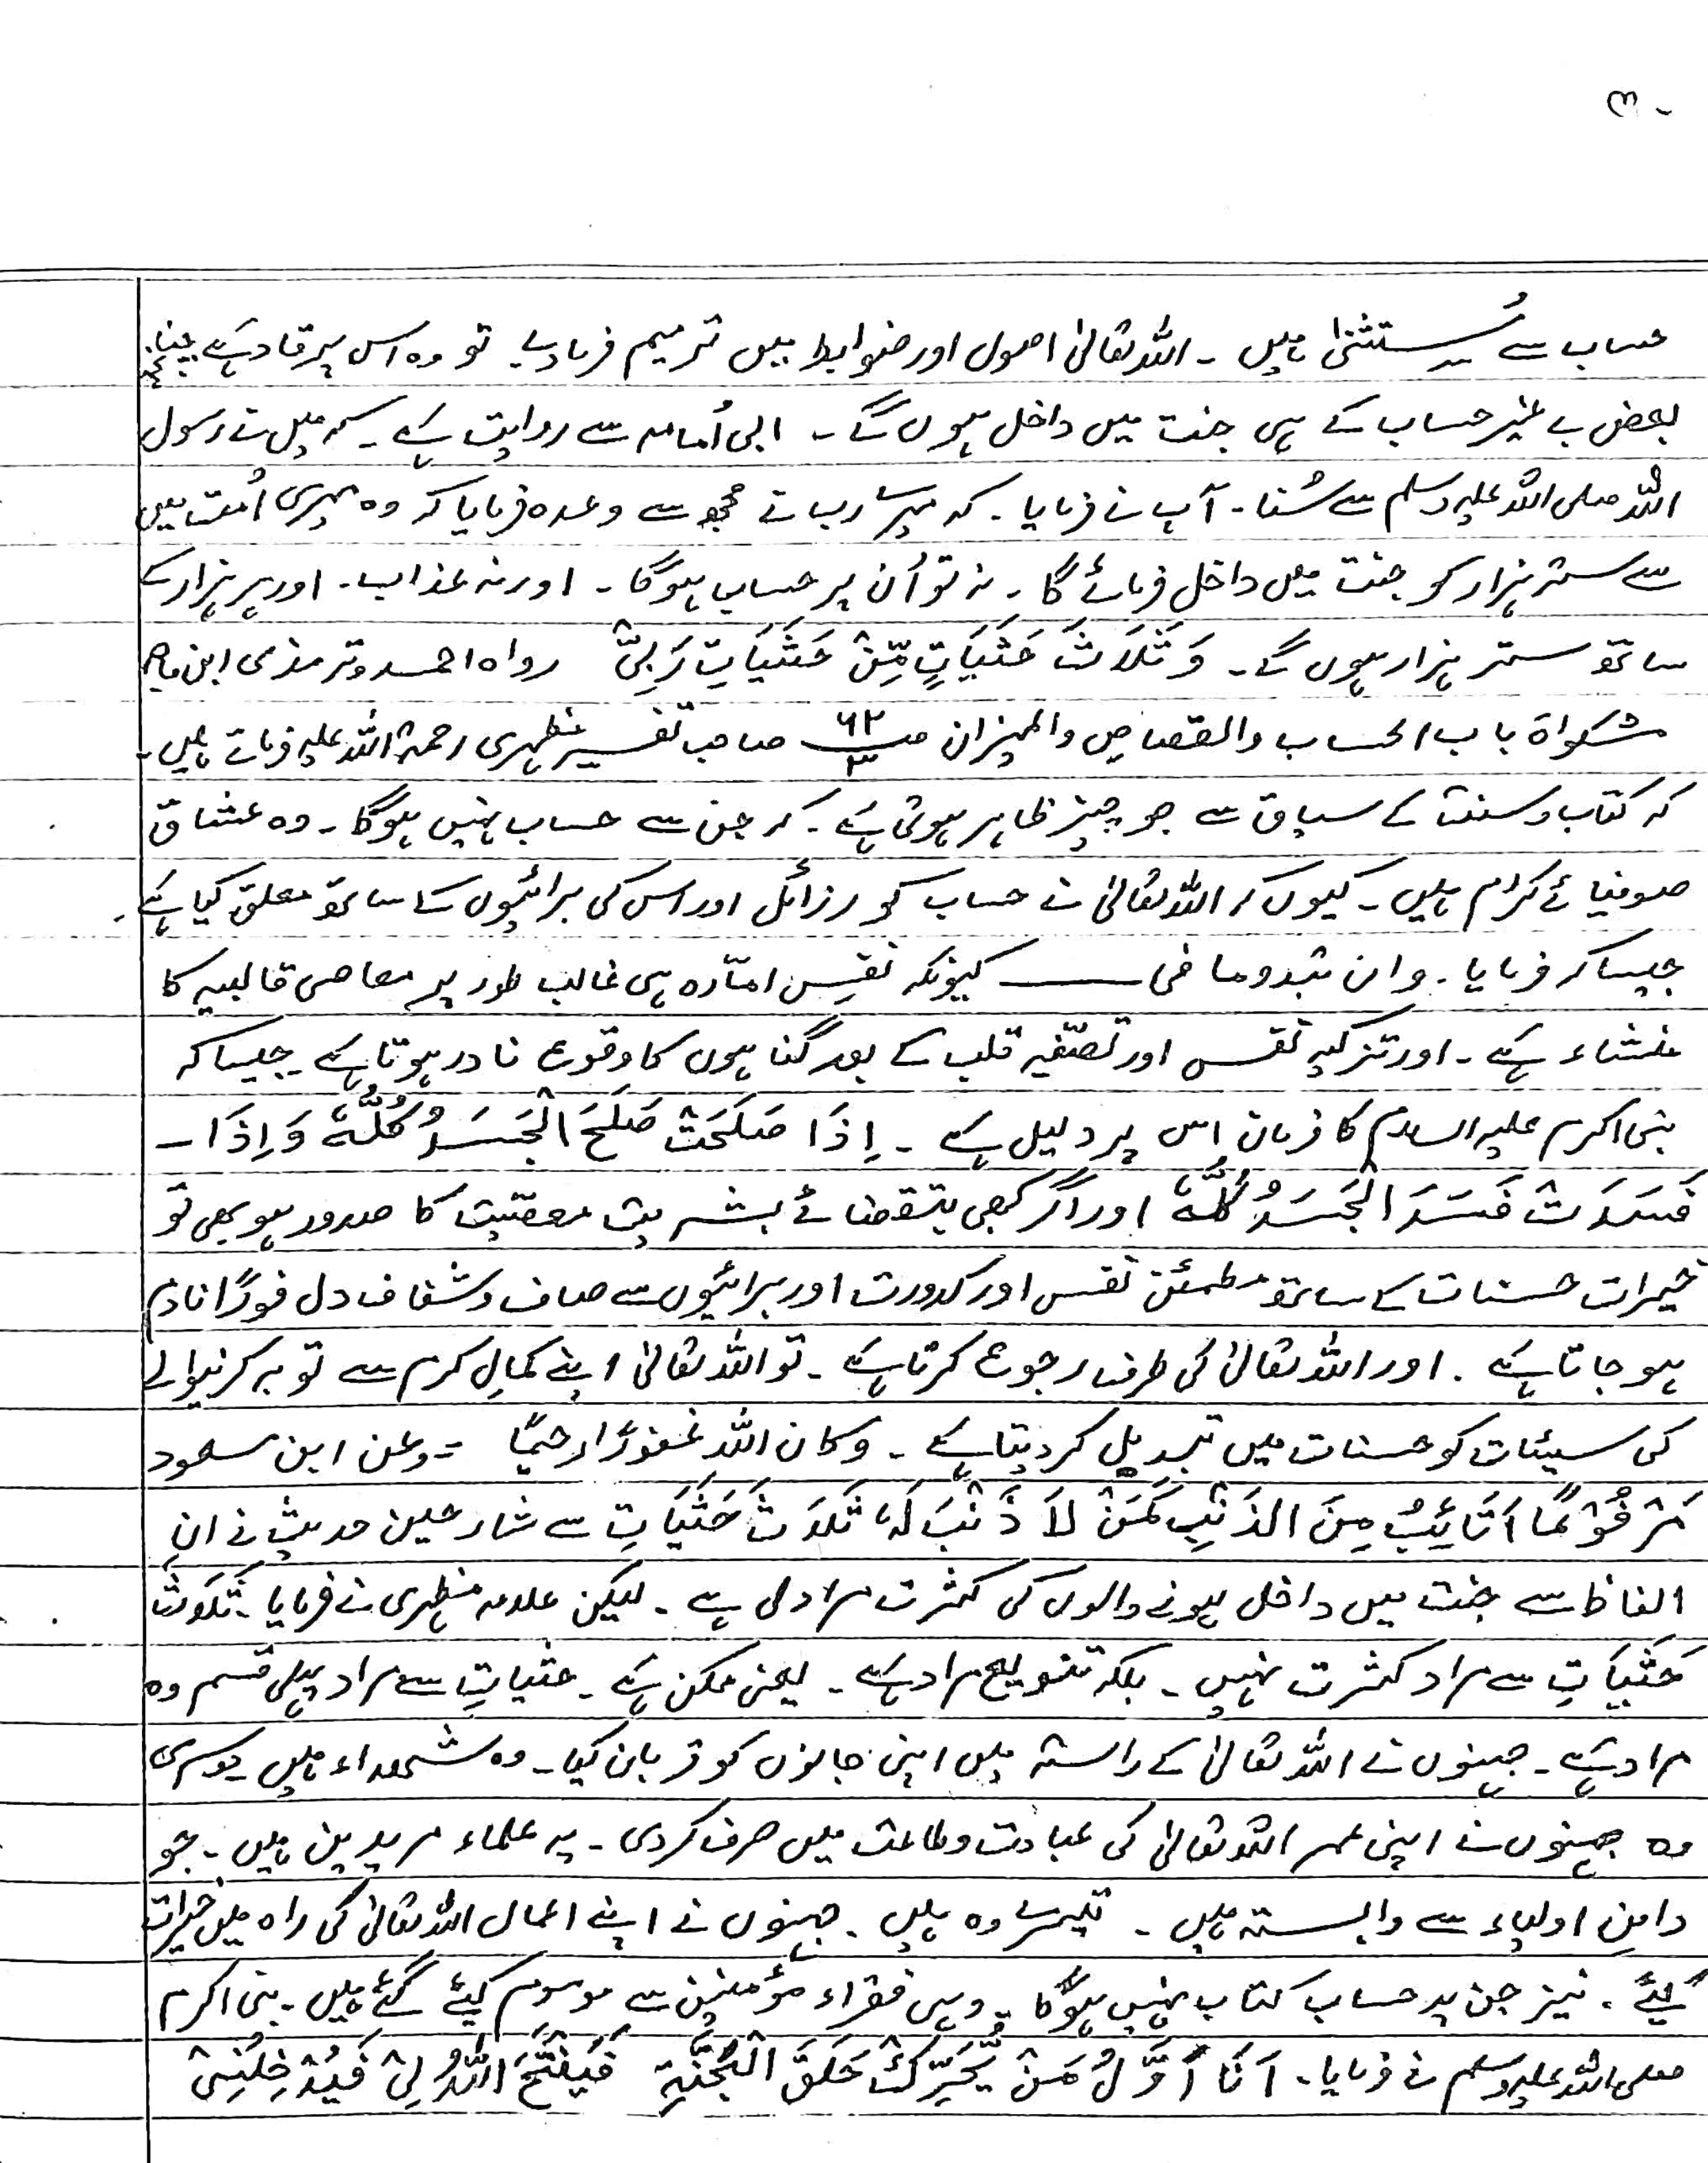 ۳-
حساب سے مُستثنیٰ ہیں ۔ اللہ تعالیٰ اصول اور ضوابط میں ترمیم فرما دے۔ تو وہ اس پر قادر ہے چنانچہ
بعض بے غیر حساب کے ہی جنت میں داخل ہوں گے ۔ ابی اُمامہ سے روایت ہے ۔ کہ میں نے رسول
اللہ صلی اللہ علیہ وسلم سے سُنا ۔ آپ نے فرمایا ۔ کہ میرے رب نے مجھ سے وعدہ فرمایا کہ وہ میری اُمت میں
سے ستر ہزار کو جنت میں داخل فرمائے گا ۔ نہ تو اُن پر حساب ہوگا ۔ اور نہ عذاب ۔ اور ہر ہزار کے
ساتھ ستر ہزار ہوں گے ۔ وَ ثَلَاثَ حَثَیَاتٍ مِّنْ حَثَیَاتِ رَبِّیْ رواہ احمد و ترمذی ابن ماجہ
مشکواۃ باب الحساب والقصاص والمیزان ص ۶۲/۳ صاحب تفسیر مظہری رحمۃ اللہ علیہ فرماتے ہیں ۔
کہ کتاب و سنت کے سیاق سے جو چیز ظاہر ہوتی ہے ۔ کہ جن سے حساب نہیں ہوگا ۔ وہ عشاق
صوفیائے کرام ہیں ۔ کیوں کہ اللہ تعالیٰ نے حساب کو رزائل اور اس کی برائیوں کے ساتھ معلق کیا ہے ۔
جیسا کہ فرمایا ۔ وان تبدوما فی ـــــ کیونکہ نفسِ امّارہ ہی غالب طور پر معاصی قالبیہ کا
منشاء ہے ۔ اور تزکیہ نفس اور تصفیہ قلب کے بعد گناہوں کا وقوع نادر ہوتا ہے ۔ جیسا کہ
نبی اکرم علیہ السلام کا فرمان اس پر دلیل ہے ۔ اِذَا صَلَحَتْ صَلَحَ الْجَسَدُ کُلُّہٗ وَ اِذَا ۔
فَسَدَتْ فَسَدَ الْجَسَدُ کُلُّہٗ اور اگر کبھی بتقضائے بشریت معصیت کا صدور ہو بھی تو
خیرات حسنات کے ساتھ مطمئن نفس اور کدورت اور برائیوں سے صاف و شفاف دل فوراً نادم
ہو جاتا ہے ۔ اور اللہ تعالیٰ کی طرف رجوع کرتا ہے ۔ تو اللہ تعالیٰ اپنے کمالِ کرم سے توبہ کرنیوالے
کی سیئات کو حسنات میں تبدیل کر دیتا ہے ۔ وکان اللہ غفوراً رحیماً = وعن ابن مسعود
مَرْفُوْعًا اَتَّائِبُ مِنَ الذَنْبِ کَمَنْ لَا ذَنْبَ لَہٗ ثَلَاثَ حَثَیَاتٍ سے شارحین حدیث نے ان
الفاظ سے جنت میں داخل ہونے والوں کی کثرت مراد لی ہے ۔ لیکن علامہ مظہری نے فرمایا ۔ ثَلَاثَ
حَثَیَاتٍ سے مراد کثرت نہیں ۔ بلکہ تنویع مراد ہے ۔ یعنی ممکن ہے ۔ حثیاتٍ سے مراد پہلی قسم وہ
مراد ہے ۔ جہنوں نے اللہ تعالیٰ کے راستہ میں اپنی جانوں کو قربان کیا ۔ وہ شھداء ہیں ۔ دوسری
وہ جہنوں نے اپنی عمر اللہ تعالیٰ کی عبادت و طاعت میں صرف کر دی ۔ یہ علماء مریدین ہیں ۔ جو
دامنِ اولیاء سے وابستہ ہیں ۔ تیسرے وہ ہیں ۔ جہنوں نے اپنے اعمال اللہ تعالیٰ کی راہ میں خیرات
کیئے ۔ نیز جن پر حساب کتاب نہیں ہوگا ۔ وہی فقراء مؤمنین سے موسوم کیئے گئے ہیں ۔ نبی اکرم
صلی اللہ علیہ وسلم نے فرمایا ۔ اَنَا اَوَّلُ مَنْ یُّحَرِّکُ حَلَقَ الْجَنَّۃِ فَیَفْتَحَ اللہُ لِیْ فَیُدْخِلُنِیْ